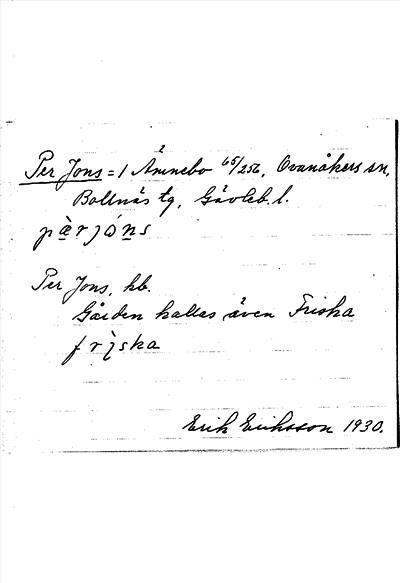 Per Jons = 1 Ämnebo 65/256, Ovanåkers sn,
Bollnäs tg, Gävleb. l.
pærjóns
Per Jons, kb.
Gården kallas även Friska
frìska
Erik Eriksson 1930.